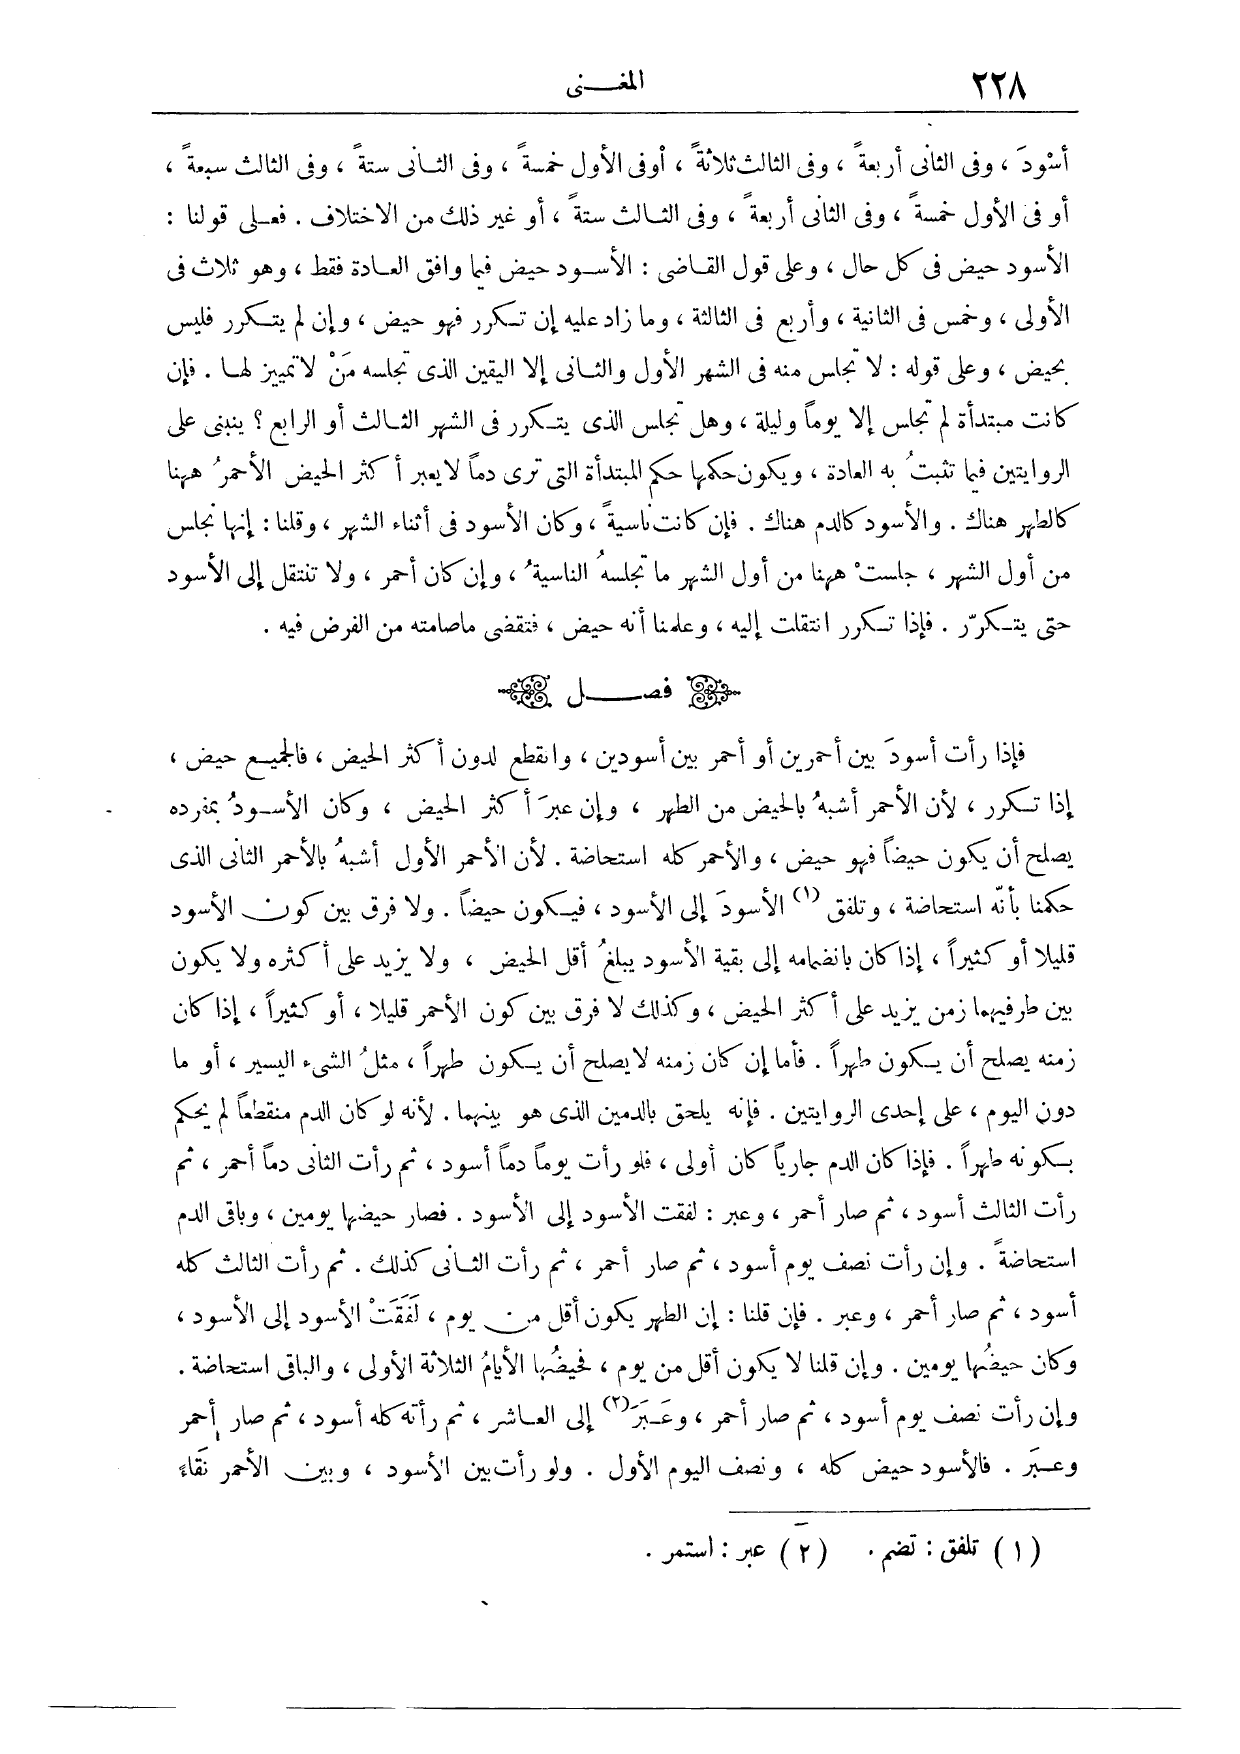 ٢٢٨
المغـــنى
أسْودَ ، وفى الثانى أربعةً ، وفى الثالث ثلاثةً ، أوفى الأول خمسةً ، وفى الثـانى ستةً ، وفى الثالث سبعةً ،
أو فى الأول خمسةً ، وفى الثانى أربعةً ، وفى الثـالث ستةً ، أو غير ذلك من الاختلاف . فعـلى قولنا :
الأسود حيض فى كل حال ، وعلى قول القـاضى : الأسـود حيض فيما وافق العادة فقط ، وهو ثلاث فى
الأولى ، وخمس فى الثانية ، وأربع فى الثالثة ، وما زاد عليه إن تـكرر فهو حيض ، وإن لم يتـكرر فليس
بحيض ، وعلى قوله : لا تجلس منه فى الشهر الأول والثـانى إلا اليقين الذى تجلسه مَنْ لا تمييز لهـا . فإن
كانت مبتدأة لم تجلس إلا يوماً وليلة ، وهل تجلس الذى يتـكرر فى الشهر الثـالث أو الرابع ؟ ينبنى على
الروايتين فيما تثبتُ به العادة ، ويكون حكمها حكم المبتدأة التى ترى دماً لا يعبر أكثر الحيض الأحمرُ ههنا
كالطهر هناك . والأسود كالدم هناك . فإن كانت ناسيةً ، وكان الأسود فى أثناء الشهر ، وقلنا : إنها تجلس
من أول الشهر ، جلستْ ههنا من أول الشهر ما تجلسهُ الناسيةُ ، وإن كان أحمر ، ولا تنتقل إلى الأسود
حتى يتـكرّر . فإذا تـكرر انتقلت إليه ، وعلمنا أنه حيض ، فتقضى ماصامته من الفرض فيه .
فصـــــل
فإذا رأت أسودَ بين أحمرين أو أحمر بين أسودين ، وانقطع لدون أكثر الحيض ، فالجميـع حيض ،
إذا تـكرر ، لأن الأحمر أشبهُ بالحيض من الطهر ، وإن عبرَ أكثر الحيض ، وكان الأسـودُ بمفرده
يصلح أن يكون حيضاً فهو حيض ، والأحمر كله استحاضة . لأن الأحمر الأول أشبهُ بالأحمر الثانى الذى
حكمنا بأنّه استحاضة ، وتلفق (١) الأسودَ إلى الأسود ، فيـكون حيضاً . ولا فرق بين كون الأسود
قليلا أو كثيراً ، إذا كان بانضمامه إلى بقية الأسود يبلغُ أقل الحيض ، ولا يزيد على أكثره ولا يكون
بين طرفيهما زمن يزيد على أكثر الحيض ، وكذلك لا فرق بين كون الأحمر قليلا ، أو كثيراً ، إذا كان
زمنه يصلح أن يـكون طهراً . فأما إن كان زمنه لا يصلح أن يـكون طهراً ، مثلُ الشىء اليسير ، أو ما
دون اليوم ، على إحدى الروايتين . فإنه يلحق بالدمين الذى هو بينهما . لأنه لو كان الدم منقطعاً لم يحكم
بـكونه طهراً . فإذا كان الدم جارياً كان أولى ، فلو رأت يوماً دماً أسود ، ثم رأت الثانى دماً أحمر ، ثم
رأت الثالث أسود ، ثم صار أحمر ، وعبر : لفقت الأسود إلى الأسود . فصار حيضها يومين ، وباقى الدم
استحاضةً . وإن رأت نصف يوم أسود ، ثم صار أحمر ، ثم رأت الثـانى كذلك . ثم رأت الثالث كله
أسود ، ثم صار أحمر ، وعبر . فإن قلنا : إن الطهر يكون أقل من يوم ، لَفَقَتْ الأسود إلى الأسود ،
وكان حيضُها يومين . وإن قلنا لا يكون أقل من يوم ، فحيضُها الأيامُ الثلاثة الأولى ، والباقى استحاضة .
وإن رأت نصف يوم أسود ، ثم صار أحمر ، وعَـبَرَ (٢) إلى العـاشر ، ثم رأته كله أسود ، ثم صار أحمر
وعـبَر . فالأسود حيض كله ، ونصف اليوم الأول . ولو رأت بين الأسود ، وبين الأحمر نقَاءً
(١) تلفق : تضم . (٢) عبر : استمر .